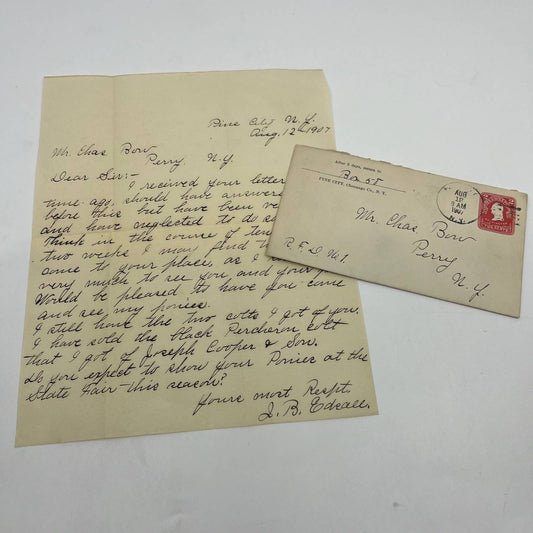 Pine City N.Y.
Aug. 12th 1907
Mr. Chas Bow
Perry, N.Y.
Dear Sir:-
I received your letter
time ago, should have answered
before this but have been
and have neglected to do so
think in the course of ten
two weeks I may find
come to your place, as I
very much to see you and your
Would be pleased to have you come
and see my ponies.
I still have the two colts I got of you.
I have sold the black Percheron colt
that I got of Joseph Cooper & Son.
Do you expect to show your Ponies at the
State Fair this season?
Yours most Respt.
J. B. Edsall.
Box 55
PINE CITY, Chemung Co., N.Y.
AUG
12
9 AM
1907
N.Y.
Mr. Chas Bow
Perry
N.Y.
R.F.D. No 1.